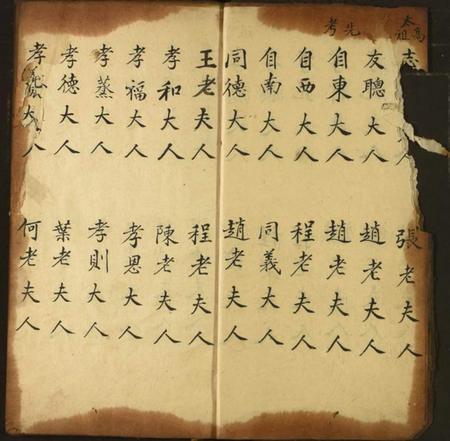 高祖
先考
志 人 張老夫人
友聰大人 趙老夫人
自東大人 趙老夫人
自西大人 程老夫人
自南大人 同義大人
同德大人 趙老夫人
王老夫人 程老夫人
孝和大人 陳老夫人
孝福大人 孝恩大人
孝蒸大人 孝則大人
孝德大人 葉老夫人
孝 大人 何老夫人